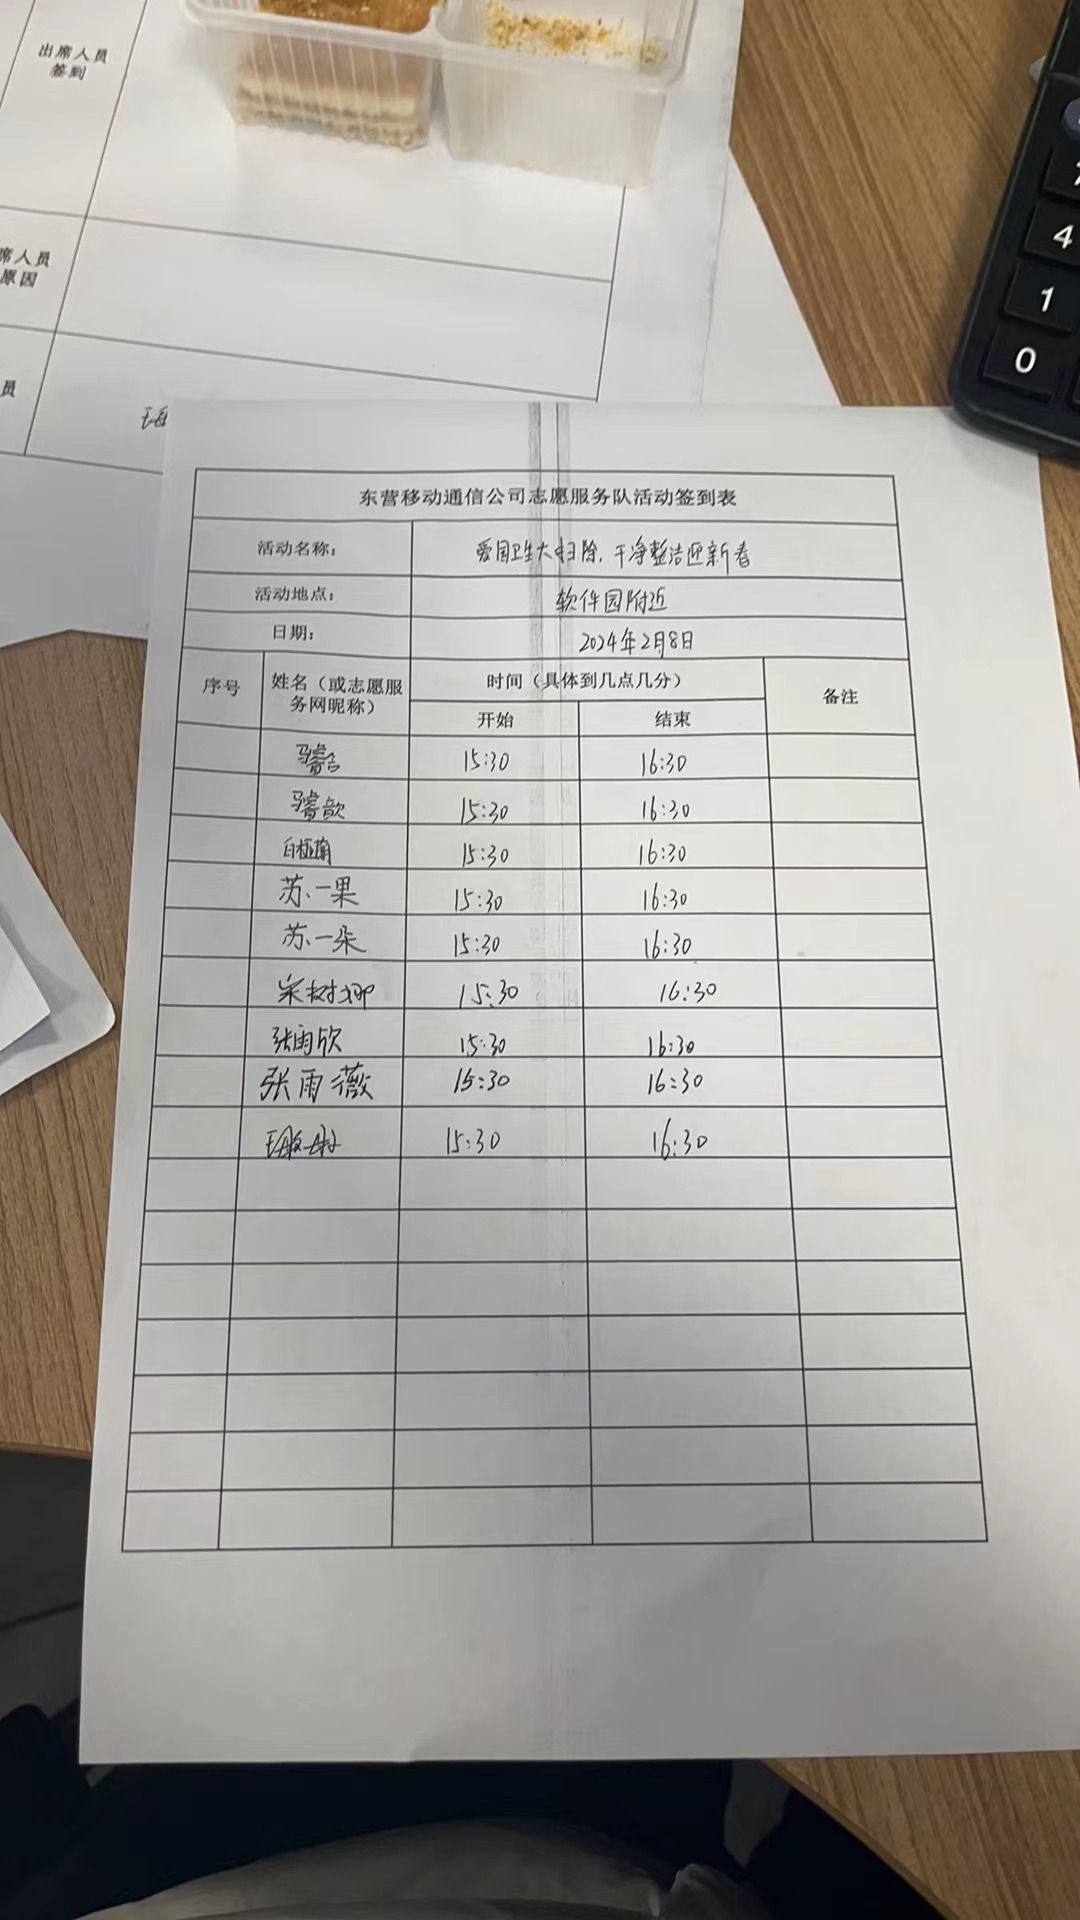 出席人员
签到
席人员
原因
员
7
4
1
0
东营移动通信公司志愿服务队活动签到表
活动名称： 爱国卫生大扫除，干净整洁迎新春
活动地点： 软件园附近
日期： 2024年2月8日
序号 姓名（或志愿服务网昵称） 时间（具体到几点几分） 备注
开始 结束
15:30 16:30
15:30 16:30
15:30 16:30
苏一果 15:30 16:30
苏一朵 15:30 16:30
宋树娜 15:30 16:30
张雨欣 15:30 16:30
张雨薇 15:30 16:30
15:30 16:30